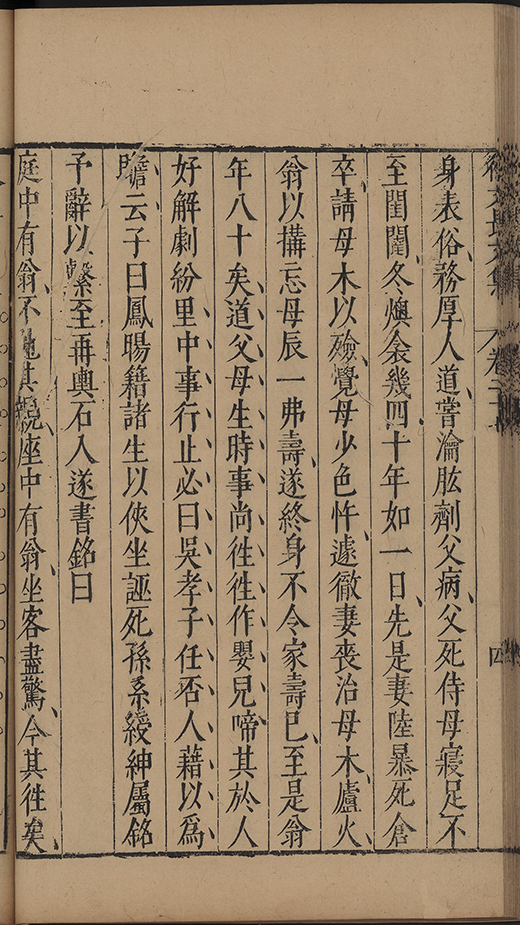 身表俗務厚人道嘗瀹肱劑父病父死侍母寢足不
至閨闥冬燠衾幾四十年如一日先是妻陸暴死倉
卒請母木以殮覺母少色忤遽徹妻喪治母木廬火
翁以搆忘母辰一弗壽遂終身不令家壽已至是翁
年八十矣道父母生時事尚徃徃作嬰兒啼其於人
好解劇紛里中事行止必曰吳孝子任否人藉以為
瞻云子曰鳳暘籍諸生以俠坐誣死孫系綬紳屬銘
予辭以繫至再輿石入遂書銘曰
庭中有翁不愧其親座中有翁坐客盡驚今其徃矣
卷二十
四